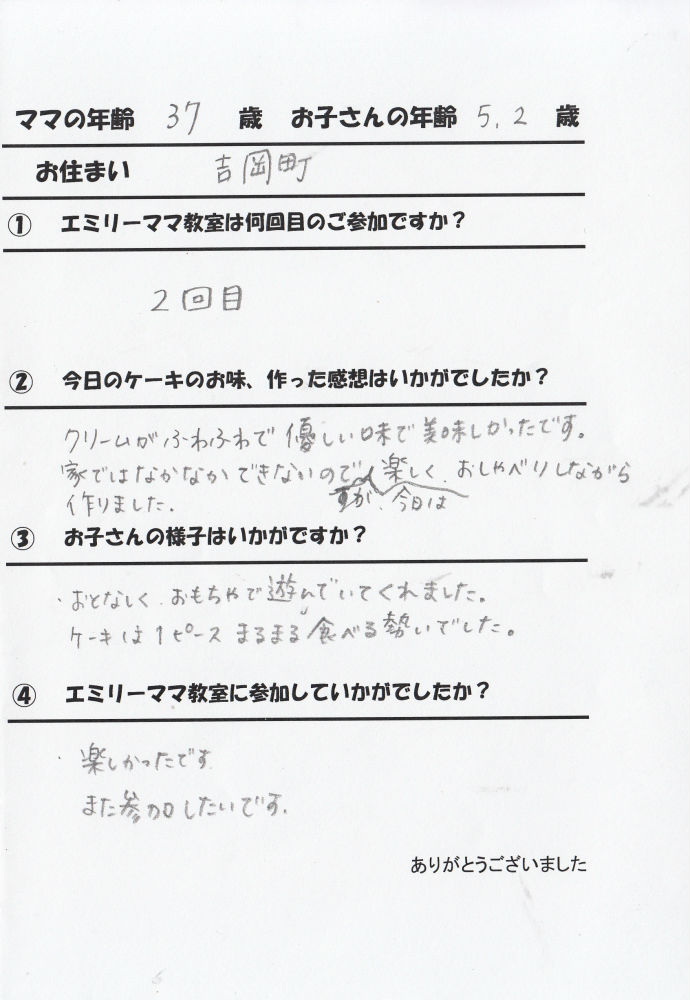 ママの年齢 37 歳 お子さんの年齢 5, 2 歳
お住まい 吉岡町
① エミリーママ教室は何回目のご参加ですか？
2回目
② 今日のケーキのお味、作った感想はいかがでしたか？
クリームがふわふわで優しい味で美味しかったです。
家ではなかなかできないのですが、今日は楽しく、おしゃべりしながら
作りました.
③ お子さんの様子はいかがですか？
・おとなしく、おもちゃで遊んでいてくれました。
ケーキは1ピースまるまる食べる勢いでした。
④ エミリーママ教室に参加していかがでしたか？
・楽しかったです
また参加したいです.
ありがとうございました